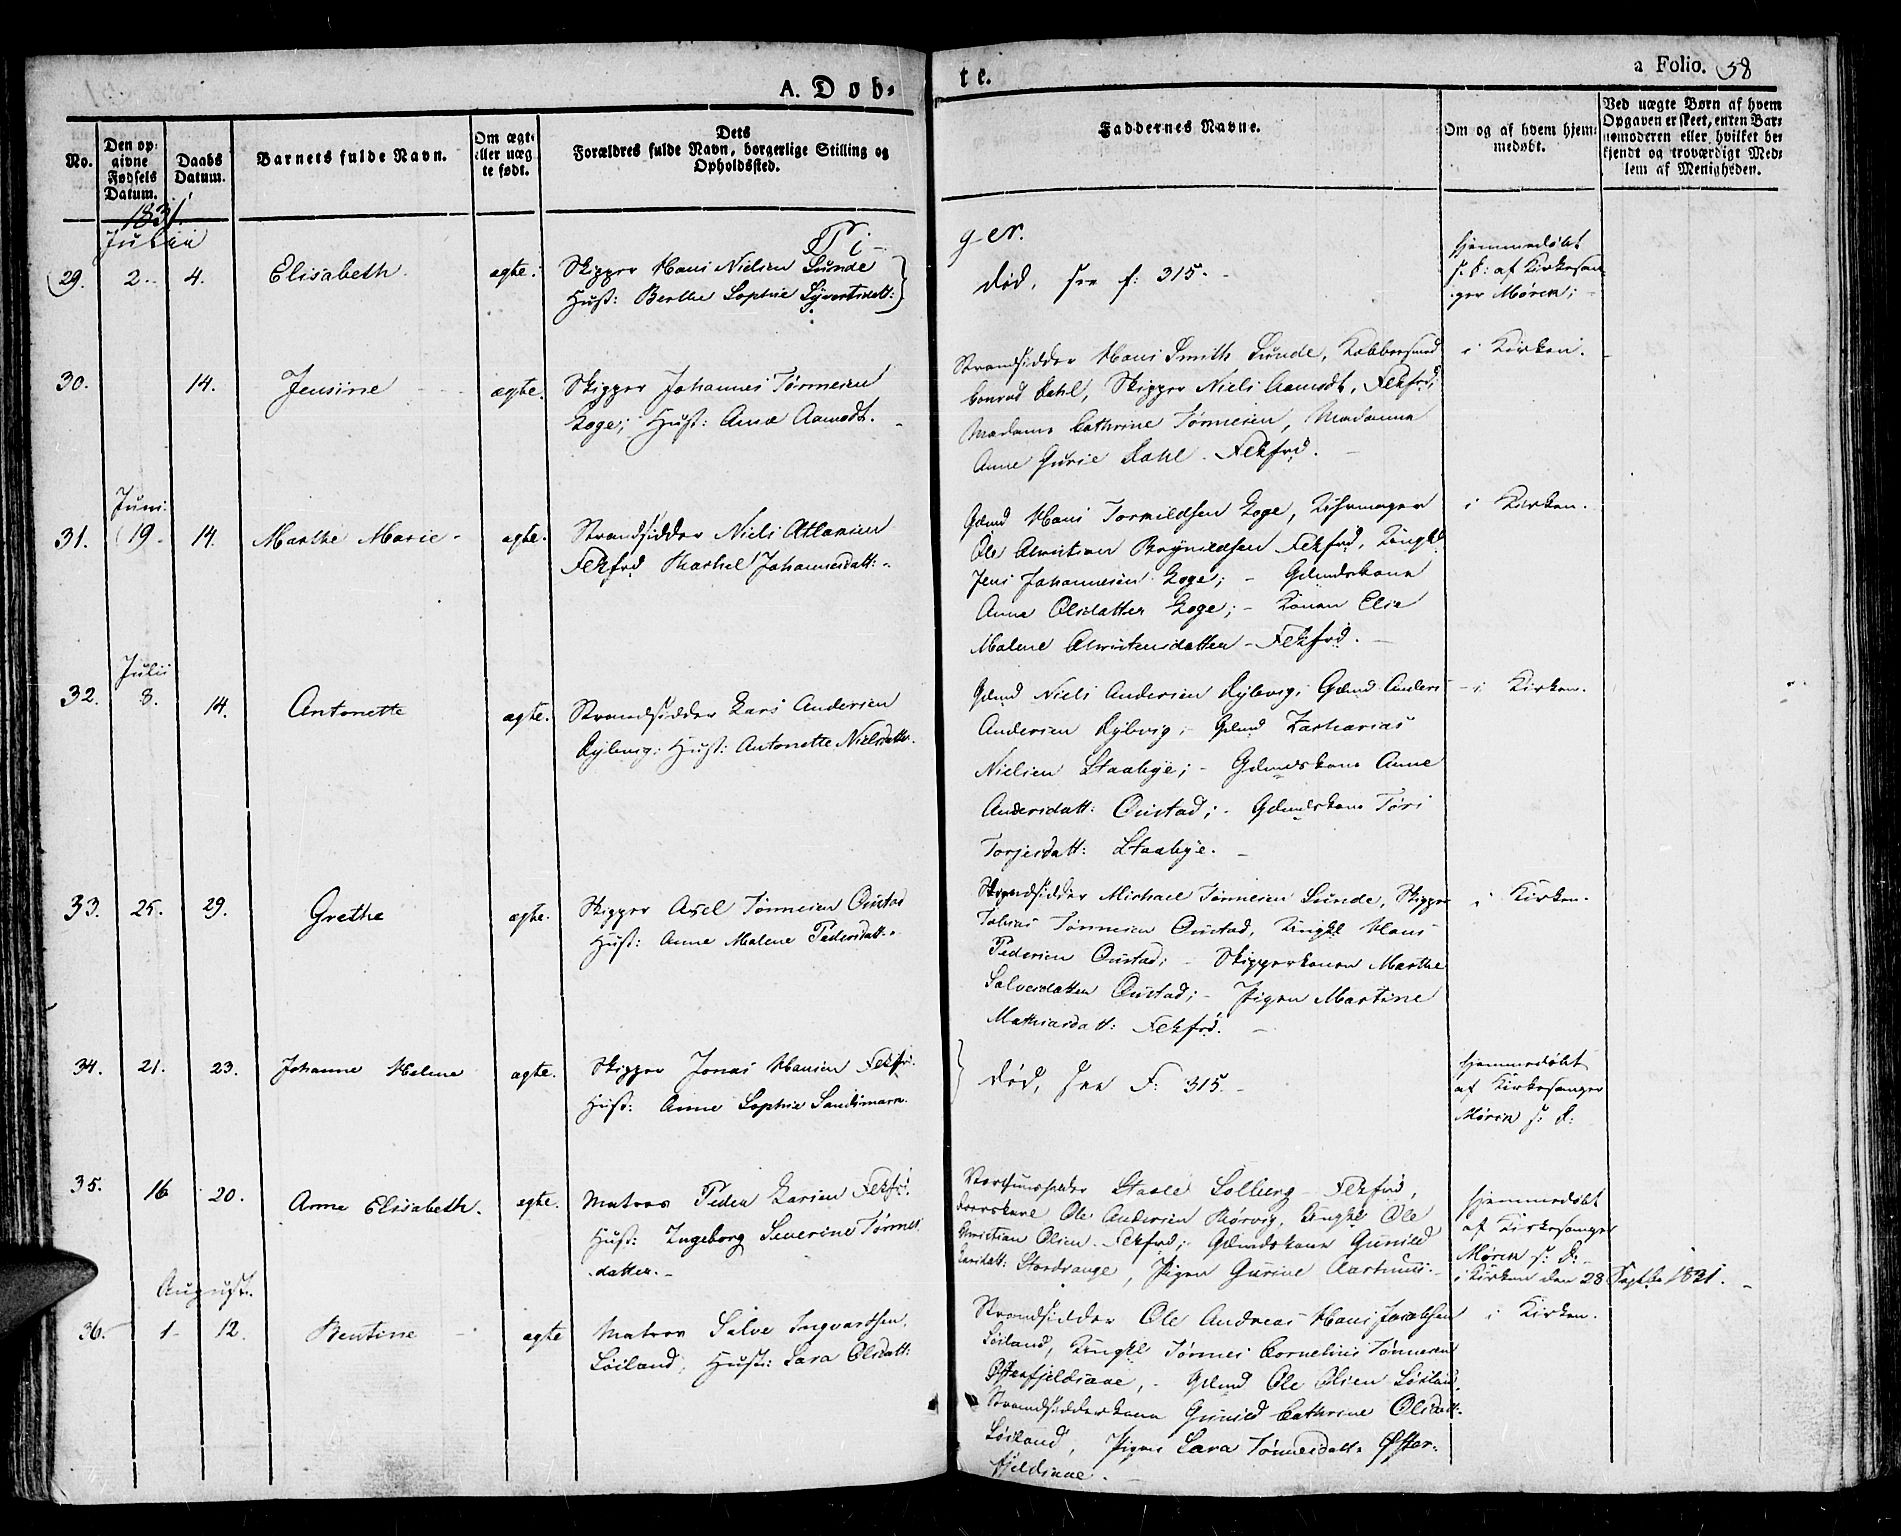 A. Døb-
te.
a Folio. 58
No.
Den op-
givne
Fødsels
Datum.
Daabs
Datum.
Barnets fulde Navn.
Om ægte
eller uæg
te født.
Dets
Forældres fulde Navn, borgerlige Stilling og
Opholdssted.
Faddernes Navne.
Om og af hvem hjem-
medøbt.
Ved uægte Børn af hvem
Opgaven er skeet, enten Bar-
nemoderen eller hvilket be-
kjendt og troværdigt Med-
lem af Menigheden.
1831.
Julii
Pi-
ger.
29. 2. 4. Elisabeth. ægte. Skipper Hans Nielsen Lunde
Hust: Berthe Sophie Syvertsdatt:
død, see f: 315.
hjemmedøbt
s. D: af Kirkesan
ger Møren;
30. 14. Jensine ægte. Skipper Johannes Tønnesen
Loge; Hust: Anne Aamodt.
Strandsidder Hans Smith Lunde,
Conrad Dahl, Skipper Niels Aamodt, Fekfrd;
Madame Cathrine Tønnesen, Madame
Anne Gurie Dahl. Fekfrd.
i Kirken.
Juni
31. 19. 14. Marthe Marie ægte. Strandsidder Niels Atlaksen
Fekfrd Rachel Johannesdatt:
Gdmd Hans Tormildsen Loge,
Ole Christian Brynildsen Fekfrd, Ungkl
Jens Johannesen Loge; - Gdmdskone
Anne Olsdatter Loge; - Konen Elie
Malene Christensdatter - Fekfrd.
i Kirken.
Julii
32. 8. 14. Antonette ægte. Strandsidder Lars Andersen
Rylevig; Hust: Antonette Nielsdatt.
Gdmd Niels Andersen Rylevig; Gdmd Anders
Andersen Rylevig; - Gdmd Zacharias
Nielsen Staalye; - Gdmdskone Anne
Andersdatt: Oustad; - Gdmdskone Tøri
Torjesdatt: Staalye.
i Kirken.
33. 25. 29. Grethe ægte. Skipper Axel Tønnesen Oustad
Hust: Anne Malene Pedersdatt.
Strandsidder Michael Tønnesen Lunde, Skipper
Tobias Tønnesen Oustad, Ungkl Hans
Pedersen Oustad; - Skipperkonen Marthe
Salvesdatter Oustad; - Pigen Martine
Mathiasdatt: Fekfrd.
i Kirken.
34. 21. 23. Johanne Helene ægte. Skipper Jonas Hansen Fekfrd.
Hust: Anne Sophie Sandsmark.
død, see F: 315.
hjemmedøbt
af Kirkesanger
Møren s: D:
35. 16 20. Anne Elisabeth. ægte. Matros Peder Larsen Fekfrd.
Hust: Ingeborg Severine Tønnes
datter.
Staale Solberg - Fekfrd,
Ole Andersen Rørvig, Ungkl Ole
Christian Olsen Fekfrd; Gdmdskone Gunild
Larsdatt: Stordrange, Pigen Gurine Aartun
hjemmedøbt
af Kirkesanger
Møren s: D:
i Kirken den 28 Septbr 1831.
August.
36. 1 12. Bentine ægte Matros Salve Ingvardsen
Løiland, Hust: Sara Olsdatt:
Strandsidder Ole Andreas Hans Jacobsen
Løiland, Ungkl Tønnes Cornelius Tønnesen
Østerfjeldsaae, - Gdmd Ole Olsen Løiland,
Strandsidderkone Gunild Cathrine Olsdatt:
Løiland, Pigen Sara Tønnesdatt: Øster-
fjeldsaae.
i Kirken.